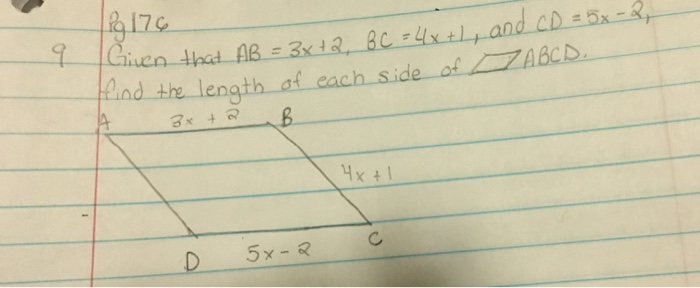 Pg 176
9 Given that AB = 3x+2, BC = 4x+1, and CD = 5x-2,
find the length of each side of ▱ABCD.
A 3x + 2 B
4x + 1
D 5x - 2 C